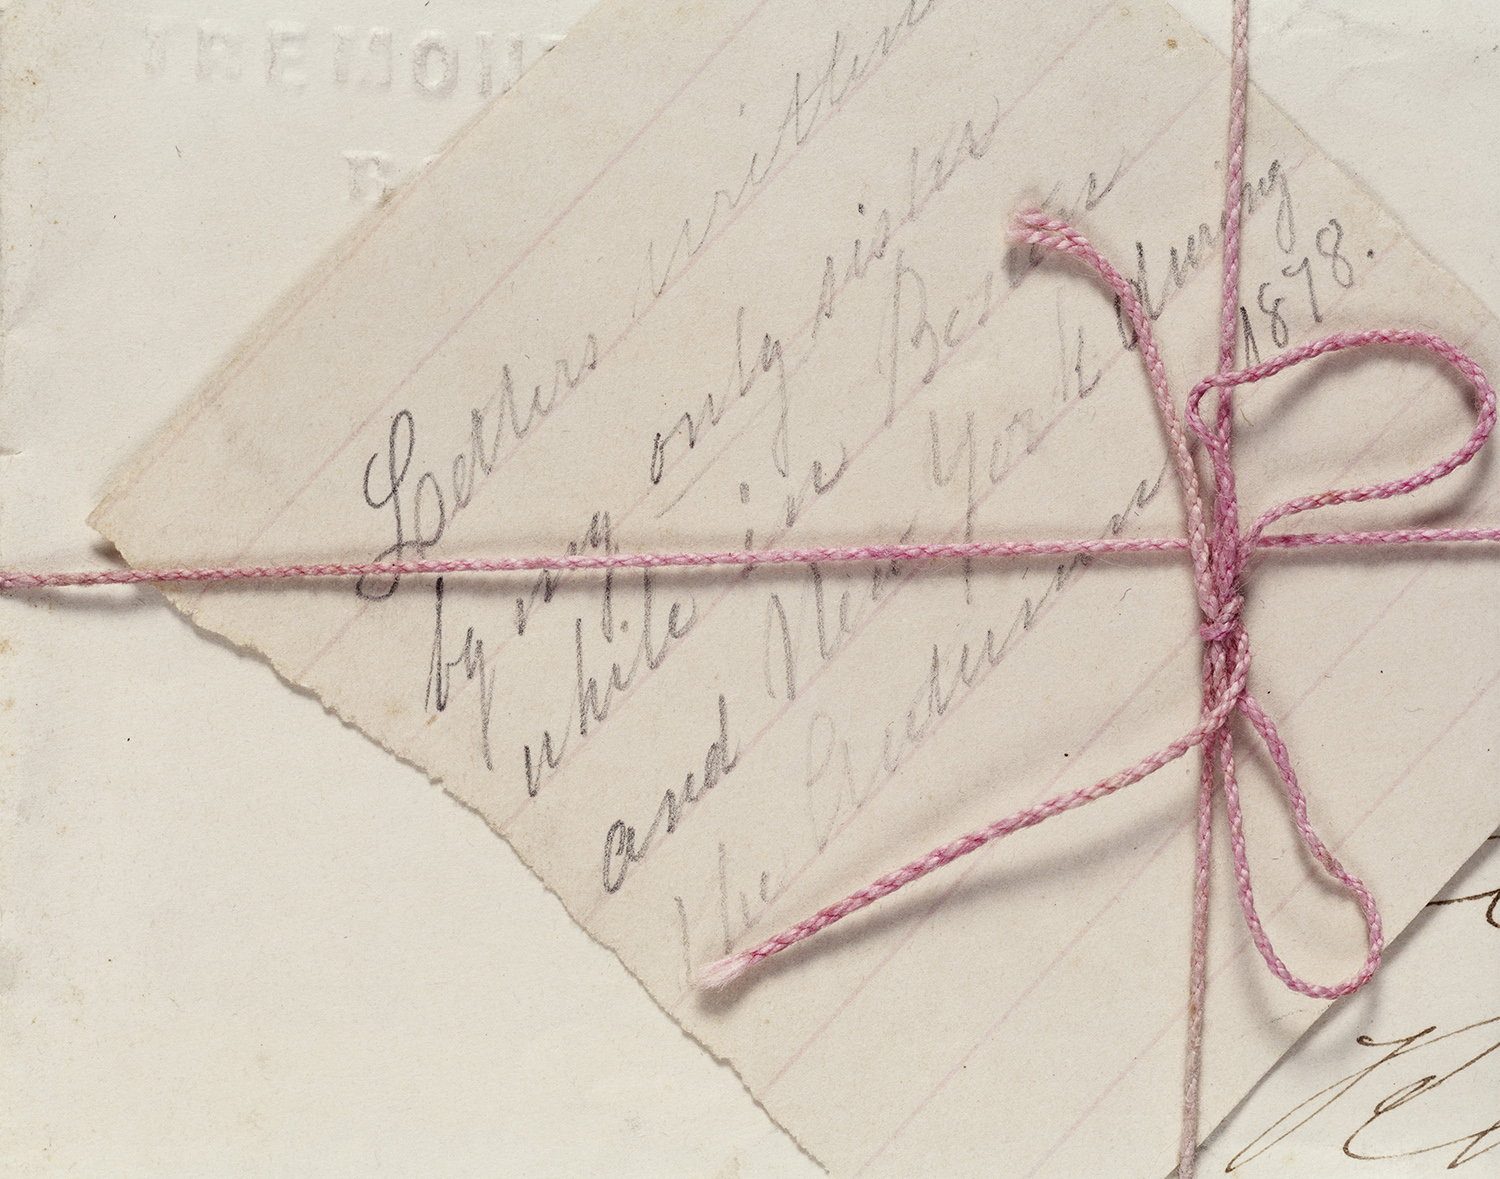 TREMON
Letters written
by my only sister
while in Boston
and New York during
the 1878.